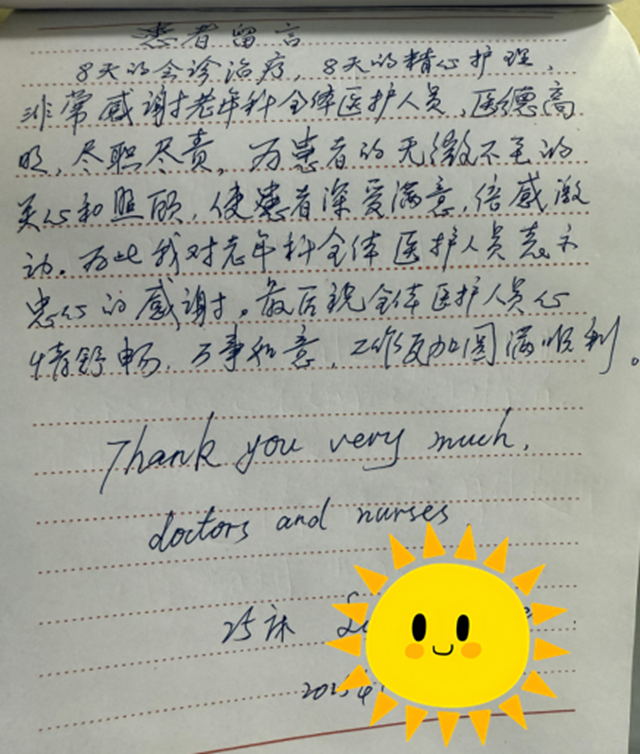 患者留言
8天的会诊治疗，8天的精心护理，
非常感谢老年科全体医护人员，医德高
明，尽职尽责，为患者的无微不至的
关心和照顾，使患者深受满意，倍感激
动。为此我对老年科全体医护人员表示
忠心的感谢。最后祝全体医护人员心
情舒畅，万事和意，工作更加圆满顺利。
Thank you very much,
doctors and nurses
25床